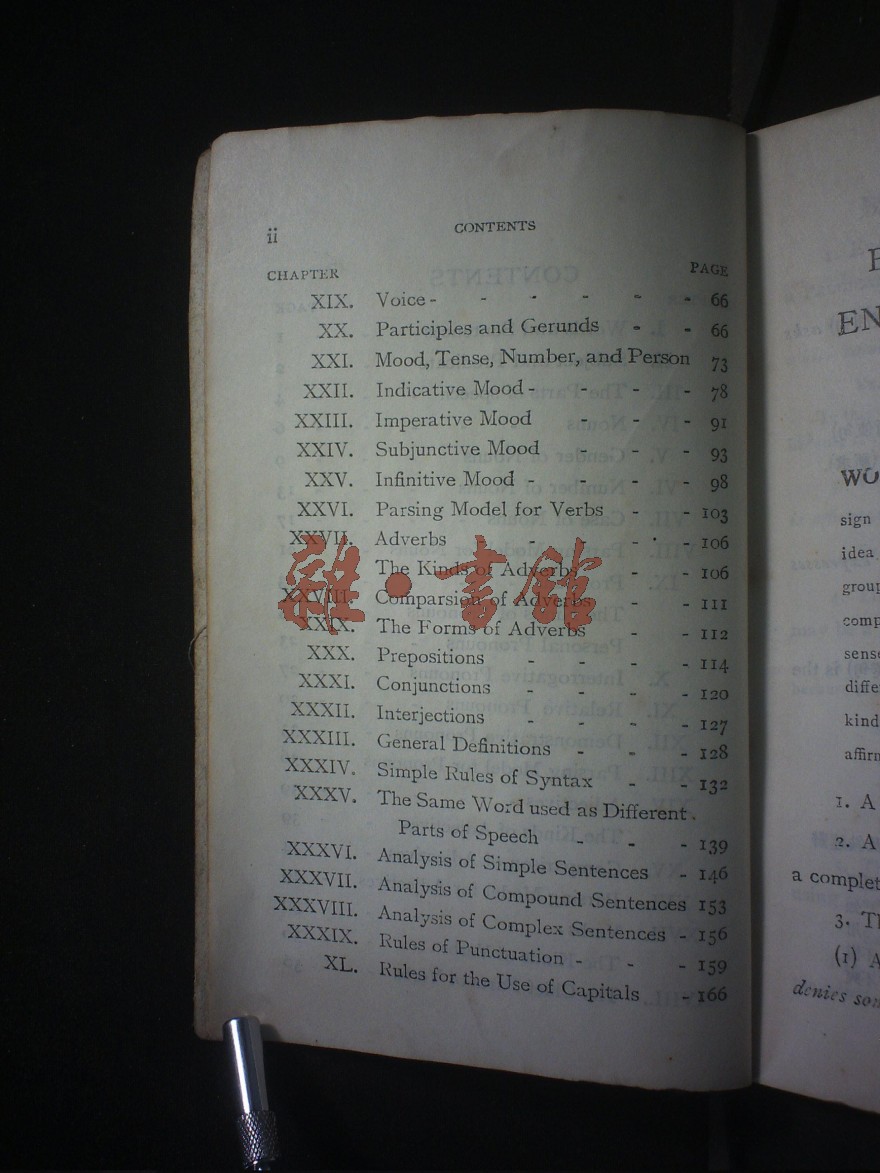 ii CONTENTS
CHAPTER PAGE
XIX. Voice - - - - - - 66
XX. Participles and Gerunds - - 66
XXI. Mood, Tense, Number, and Person 73
XXII. Indicative Mood - - - - 78
XXIII. Imperative Mood - - - 91
XXIV. Subjunctive Mood - - - 93
XXV. Infinitive Mood - - - - 98
XXVI. Parsing Model for Verbs - - 103
XXVII. Adverbs - - - - 106
The Kinds of Adverbs - - 106
XXVIII. Comparsion of Adverbs - - 111
XXIX. The Forms of Adverbs - - 112
XXX. Prepositions - - - - 114
XXXI. Conjunctions - - - - 120
XXXII. Interjections - - - - 127
XXXIII. General Definitions - - - 128
XXXIV. Simple Rules of Syntax - - 132
XXXV. The Same Word used as Different
Parts of Speech - - - 139
XXXVI. Analysis of Simple Sentences - 146
XXXVII. Analysis of Compound Sentences 153
XXXVIII. Analysis of Complex Sentences - 156
XXXIX. Rules of Punctuation - - - 159
XL. Rules for the Use of Capitals - 166
雜·書館
EN
WO
sign
idea
group
comp
sense
diffe
kind
affirm
1. A
2. A
a complet
3. Th
(1) A
denies som